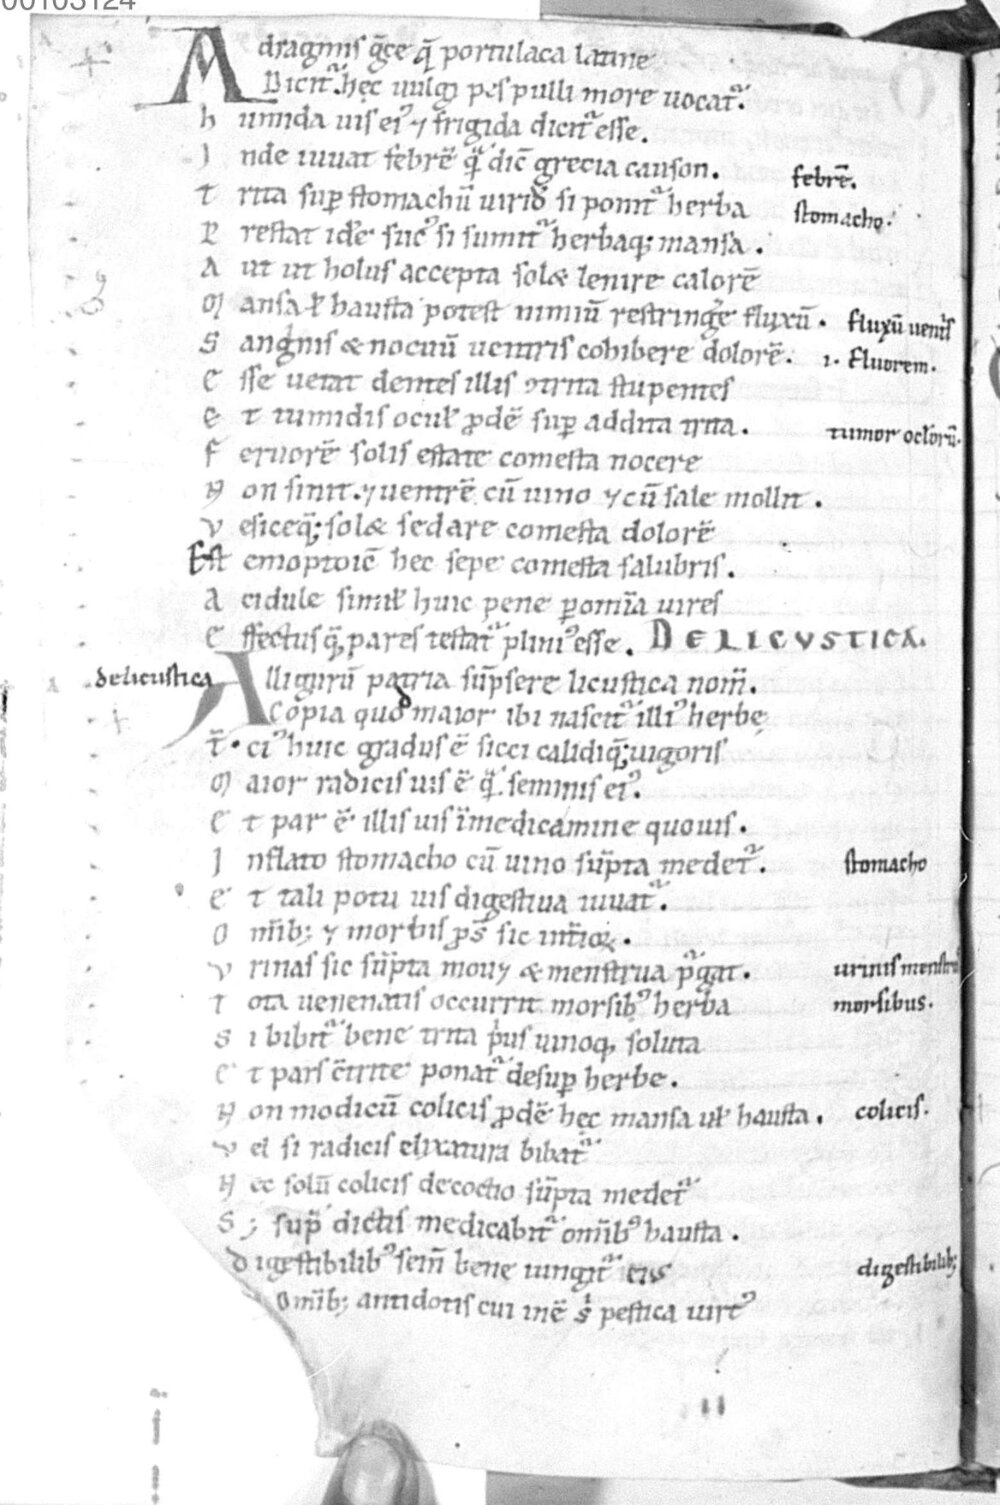 00103124
Adragnis gc̄e q̄ portulaca latine
Dicit᷑ hęc uulgi pes pulli more uocat᷑.
humida uis ei᷒ ⁊ frigida dicit᷑ esse.
Inde iuuat febrē q̄ dic̄ grecia causon. febrē.
Trita suꝑ stomachū uirid᷒ si ponit᷑ herba stomacho.
Prestat idē suc᷒ si sumit᷑ herbaq; mansa.
Aut ut holus accepta sol& lenire calorē
Mansa ł hausta potest nimiū restringe᷒ fluxū. fluxū uent᷑s
Sanguis & nocuū uentris cohibere dolorē. i. fluorem.
Esse uetat dentes illis ꝯtrita stupentes
Et tumidis ocuł ꝓdē̄ suꝑ addita trita. tumor oclorū.
Feruorē solis estate comesta nocere
Non sinit. ⁊ uentrē cū uino ⁊ cū sale mollit.
Vesiceq; sol& sedare comesta dolorē
Est emoptoic̄ hec sepe comesta salubris.
Acidule simił huic pene ꝑ om̄ia uires
Effectusq; pares testat᷑ plini᷒ esse. DE LICVSTICA.
de licustica Alligurū patria sūpsere licustica nom̄.
Copia quod maior ibi nascit᷑ illi᷒ herbę
t̄. ci᷒ huic gradus ē sicci calidiq; uigoris
Maior radicis uis ē q̄ seminis ei᷒.
Et par ē illis uis ī medicamine quouis.
Inflato stomacho cū uino sūpta medet᷑. stomacho
Et tali potu uis digestiua iuuat᷑.
Om̄ib; ⁊ morbis ꝓs̄ sic int̄ioꝝ.
Vrinas sic sūpta mou& & menstrua p᷑gat. urinis menstru
Tota uenenatis occurrit morsib᷒ herba morsibus.
Si bibit᷑ bene trita p̍us uinoq; soluta
Et pars c̄trite ponat᷑ desuꝑ herbe.
Non modicū colicis ꝓdē̄ hęc mansa uł hausta. colicis.
Vel si radicis elixatura bibat᷑
Nec solū colicis decoctio sūpta medet᷑
S; sup̄ dictis medicabit᷑ om̄ib᷒ hausta.
Digestibilib᷒ sem̄ bene iungit᷑ eius digestibilib;
Om̄ib; antidotis cui inē̄ s̍ peptica uirt᷒